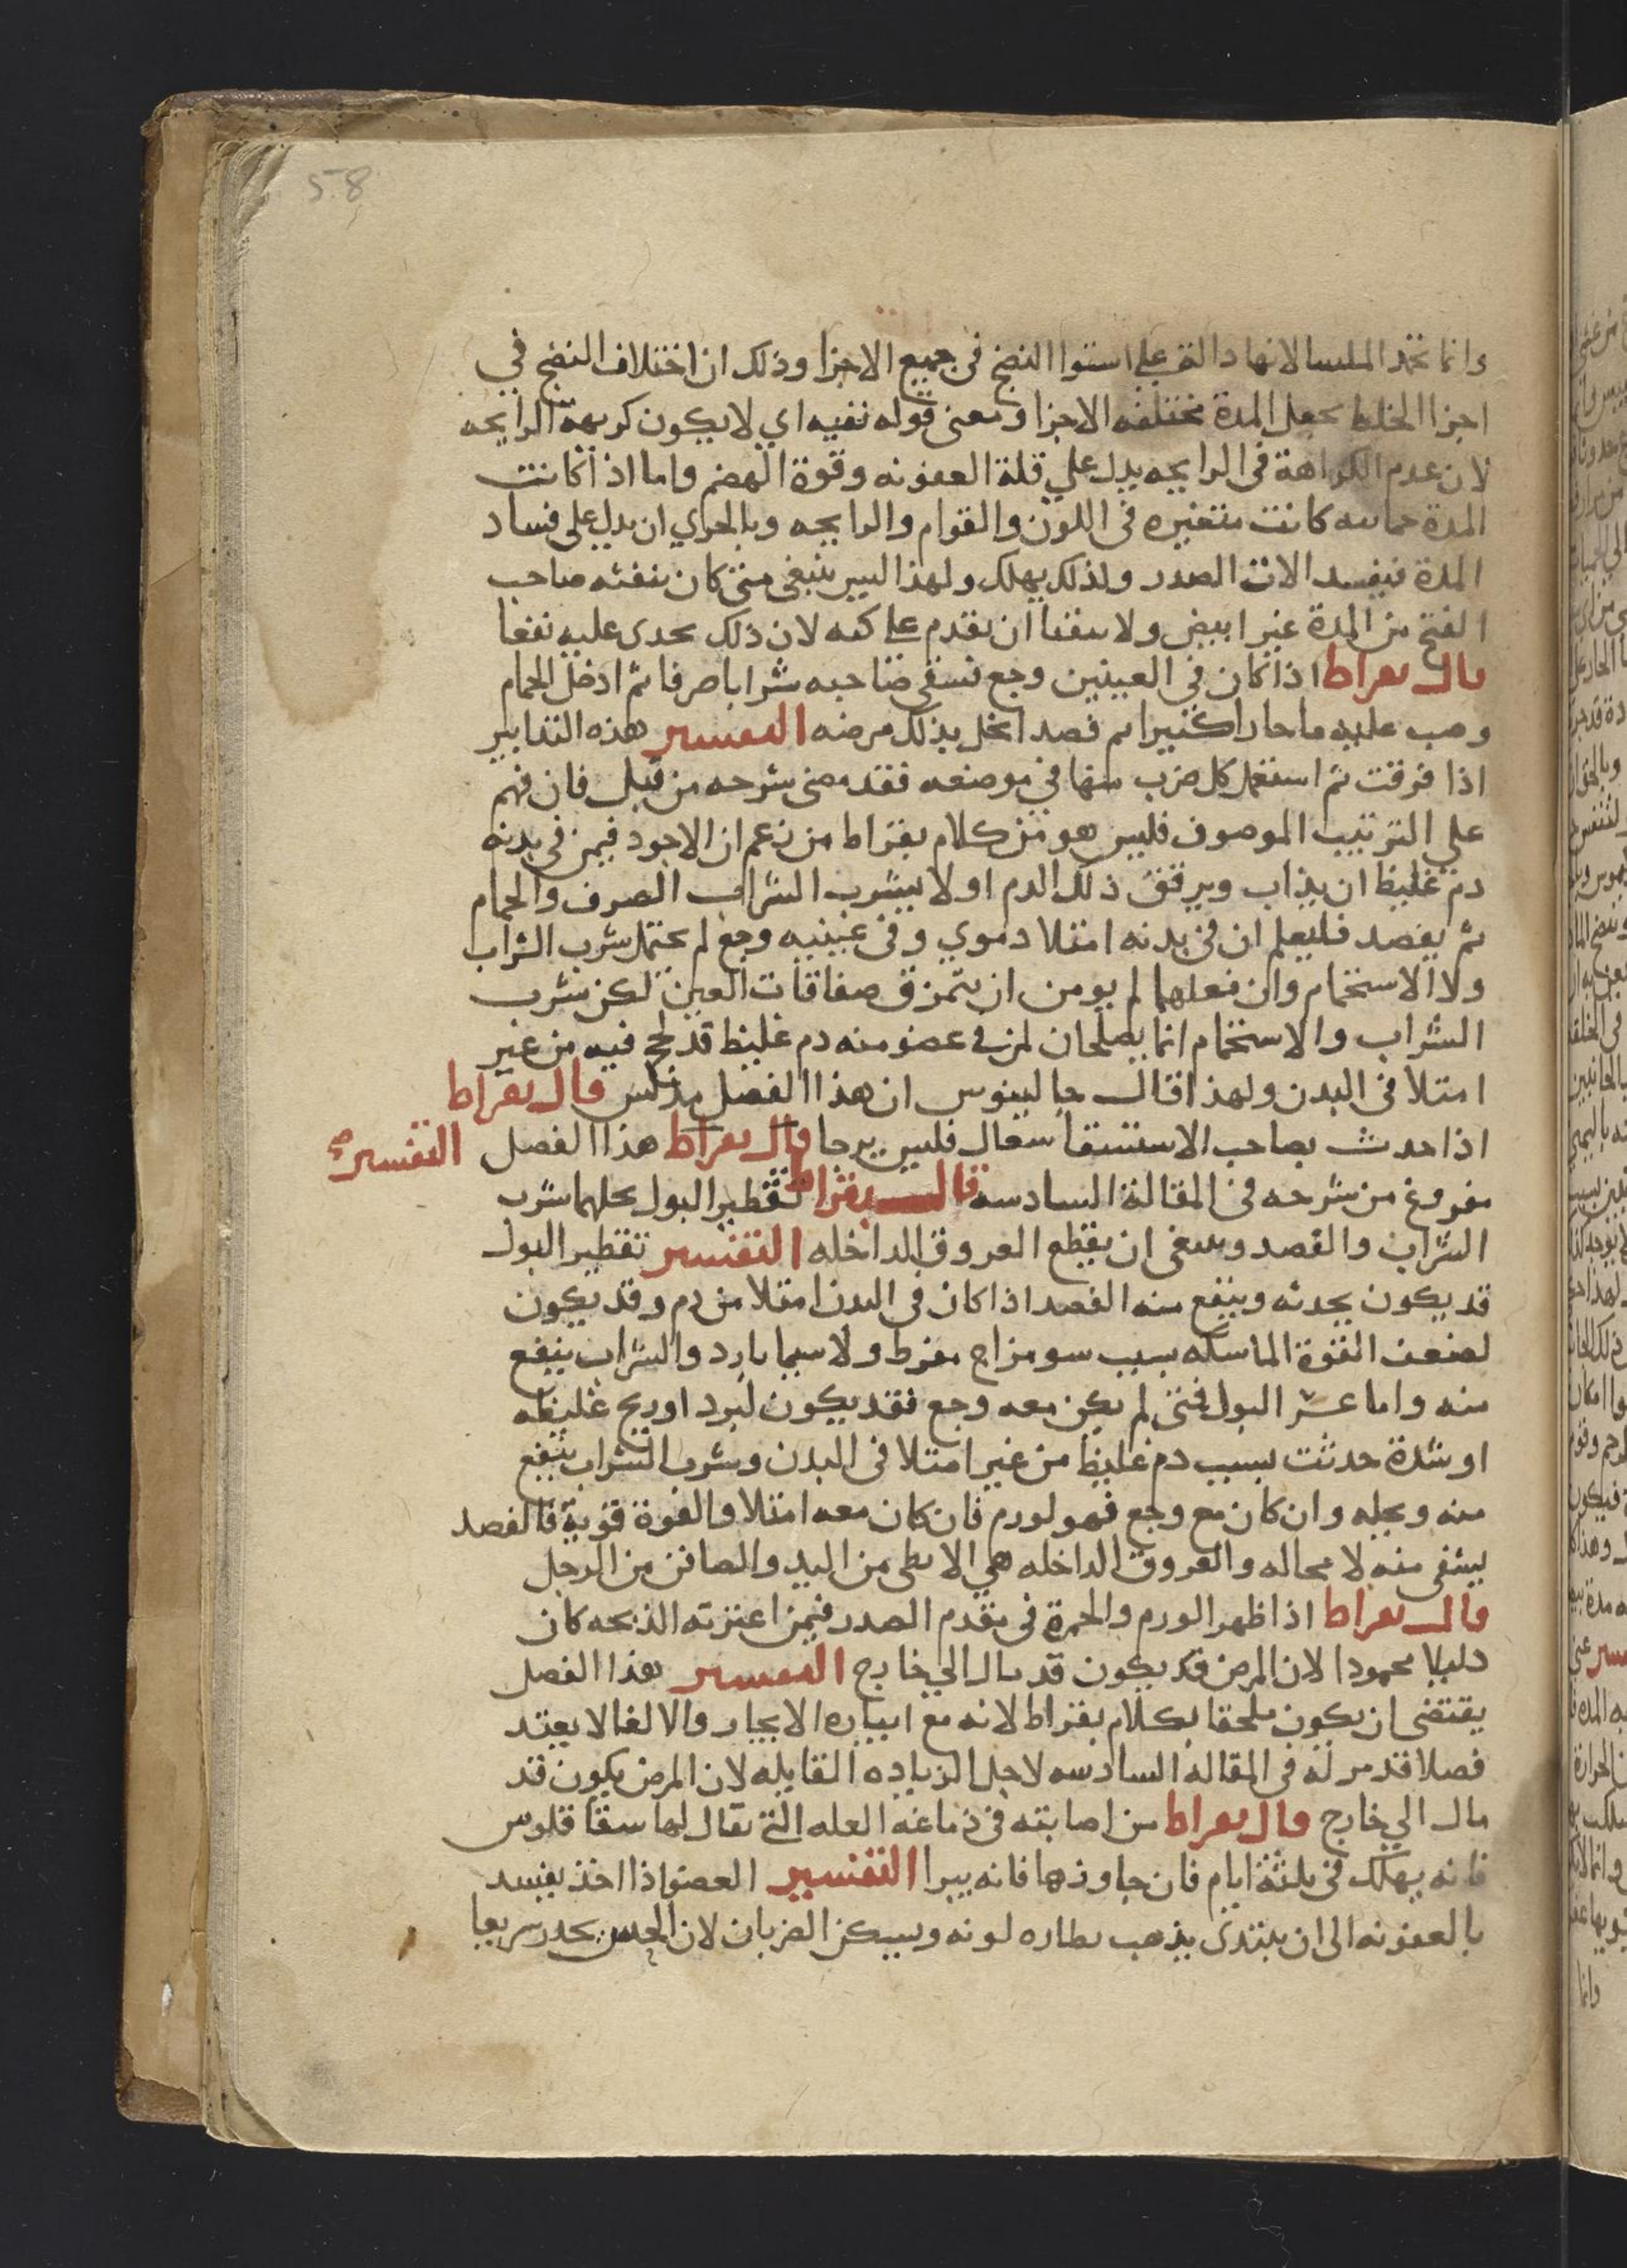 58
وانما تحمد الملسا لانها دالة علي استوا النضج في جميع الاجزا وذلك ان اختلاف النضج في
اجزا الخلط يجعل المدة مختلفه الاجزا ومعنى قوله نقيه اي لا يكون كريهة الرايحه
لان عدم الكراهة في الرايحه يدل علي قلة العفونه وقوة الهضم واما اذا كانت
المدة حماىىه كانت متغيره في اللون والقوام والرايحه وبالحري ان يدل على فساد
المدة فيفسد الات الصدر ولذلك يهلك ولهذا ليس ينبغي متى كان ينفثه صاحب
الفتح من المدة غير ابيض ولا نقيا ان يقدم علي كيه لان ذلك يجدى عليه نفعا
قال بقراط اذا كان في العينين وجع فسقي صاحبه شرابا صرفا ثم ادخل الحمام
وصب عليه ما حارا كثيرا ثم فصد انحل بذلك مرضه التفسير هذه التدابير
اذا فرقت ثم استعمل كل ضرب منها في موضعه فقد مضى شرحه من قبل فان فهم
علي الترتيب الموصوف فليس هو من كلام بقراط من زعم ان الاجود فيمن في بدنه
دم غليظ ان يذاب ويرقق ذلك الدم اولا بشرب الشراب الصرف والحمام
ثم يفصد فليعلم ان في بدنه امتلا دموي وفي عينيه وجع لم يحتمل شرب الشراب
ولا الاستحمام وان فعلهما لم يومن ان يتمزق صفاقات العين لكن شرب
الشراب والاستحمام انما يصلحان لمن في عضو منه دم غليظ قد لحج فيه من غير
امتلا في البدن ولهذا قال جالينوس ان هذا الفصل مدلس قال بقراط
اذا حدث بصاحب الاستسقا سعال فليس يرجا قال بقراط هذا الفصل التفسير
مفروغ من شرحه في المقالة السادسه قال بقراط تقطير البول يحلهما شرب
الشراب والفصد وينبغي ان يقطع العروق الداخله التفسير تقطير البول
قد يكون يحدثه وينفع منه الفصد اذا كان في البدن امتلا من دم وقد يكون
لضعف القوة الماسكه بسبب سو مزاج مفرط ولا سيما بارد والشراب ينفع
منه واما عسر البول فمتى لم يكن معه وجع فقد يكون لبرد او ريح غليظه
او شدة حدثت بسبب دم غليظ من غير امتلا في البدن وشرب الشراب ينفع
منه ويحله وان كان مع وجع فهو لورم فان كان معه امتلا والقوة قوية فالفصد
يشفي منه لا محاله والعروق الداخله هي الابطي من اليد والصافن من الرجل
قال بقراط اذا ظهر الورم والحمرة في مقدم الصدر فيمن اعترته الذبحه كان
دليلا محمودا لان المرض قد يكون قد مال الي خارج التفسير هذا الفصل
يقتضي ان يكون ملحقا بكلام بقراط لانه مع ايثاره الايجاز والالغا لا يعيد
فصلا قد مر له في المقاله السادسه لاجل الزياده القايله لان المرض يكون قد
مال الي خارج قال بقراط من اصابته في دماغه العله التي يقال لها سقاقلوس
فانه يهلك في ثلثة ايام فان جاوزها فانه يبرا التفسير العضو اذا اخذ يفسد
بالعفونه الى ان يبتدى يذهب بطاره لونه ويسكن الضربان لان الحس يخدر سريعا